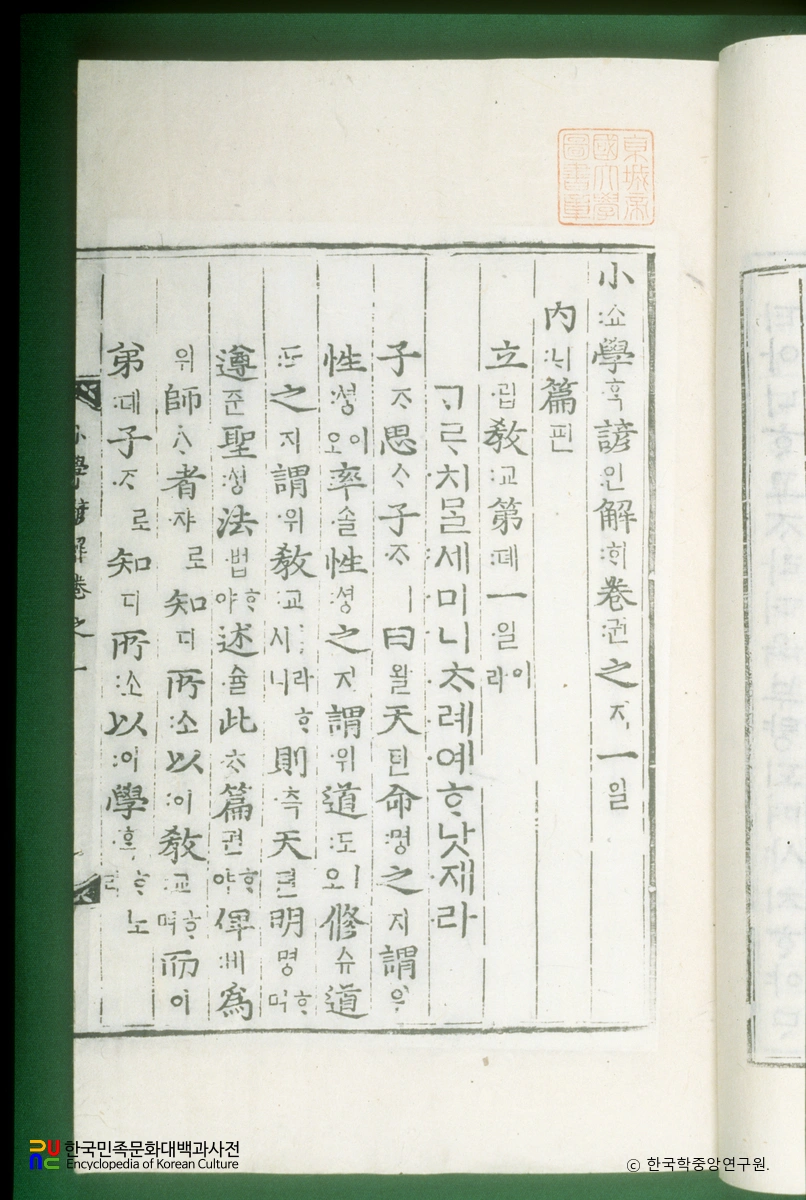 京城帝
國大學
圖書章
小:쇼學·ᄒᆞᆨ諺:언解:ᄒᆡ卷:권之지一일
內:ᄂᆡ篇편
立·립敎:교第:뎨一·일이라
ᄀᆞᄅᆞ·치ᄆᆞᆯ셰미니·ᄎᆞ례·예ᄒᆞ낫재·라
子·ᄌᆞ思ᄉᆞ子·ᄌᆞㅣ曰·왈天텬命:명之지謂위
性:셩이오率·솔性:셩之지謂·위道:도ㅣ오修슈道
:도之지謂·위敎:교ㅣ라ᄒᆞ시니則·측天텬明명ᄒᆞ며
遵준聖:셩法·법ᄒᆞ야述·슐此·ᄎᆞ篇편ᄒᆞ야俾:비爲
위師ᄉᆞ者·쟈로知디所:소以:이敎:교ᄒᆞ며而이
弟:뎨子·ᄌᆞ로知디所:소以:이學·ᄒᆞᆨᄒᆞ노라
小學諺解卷之一
한국민족문화대백과사전
Encyclopedia of Korean Culture
ⓒ 한국학중앙연구원.